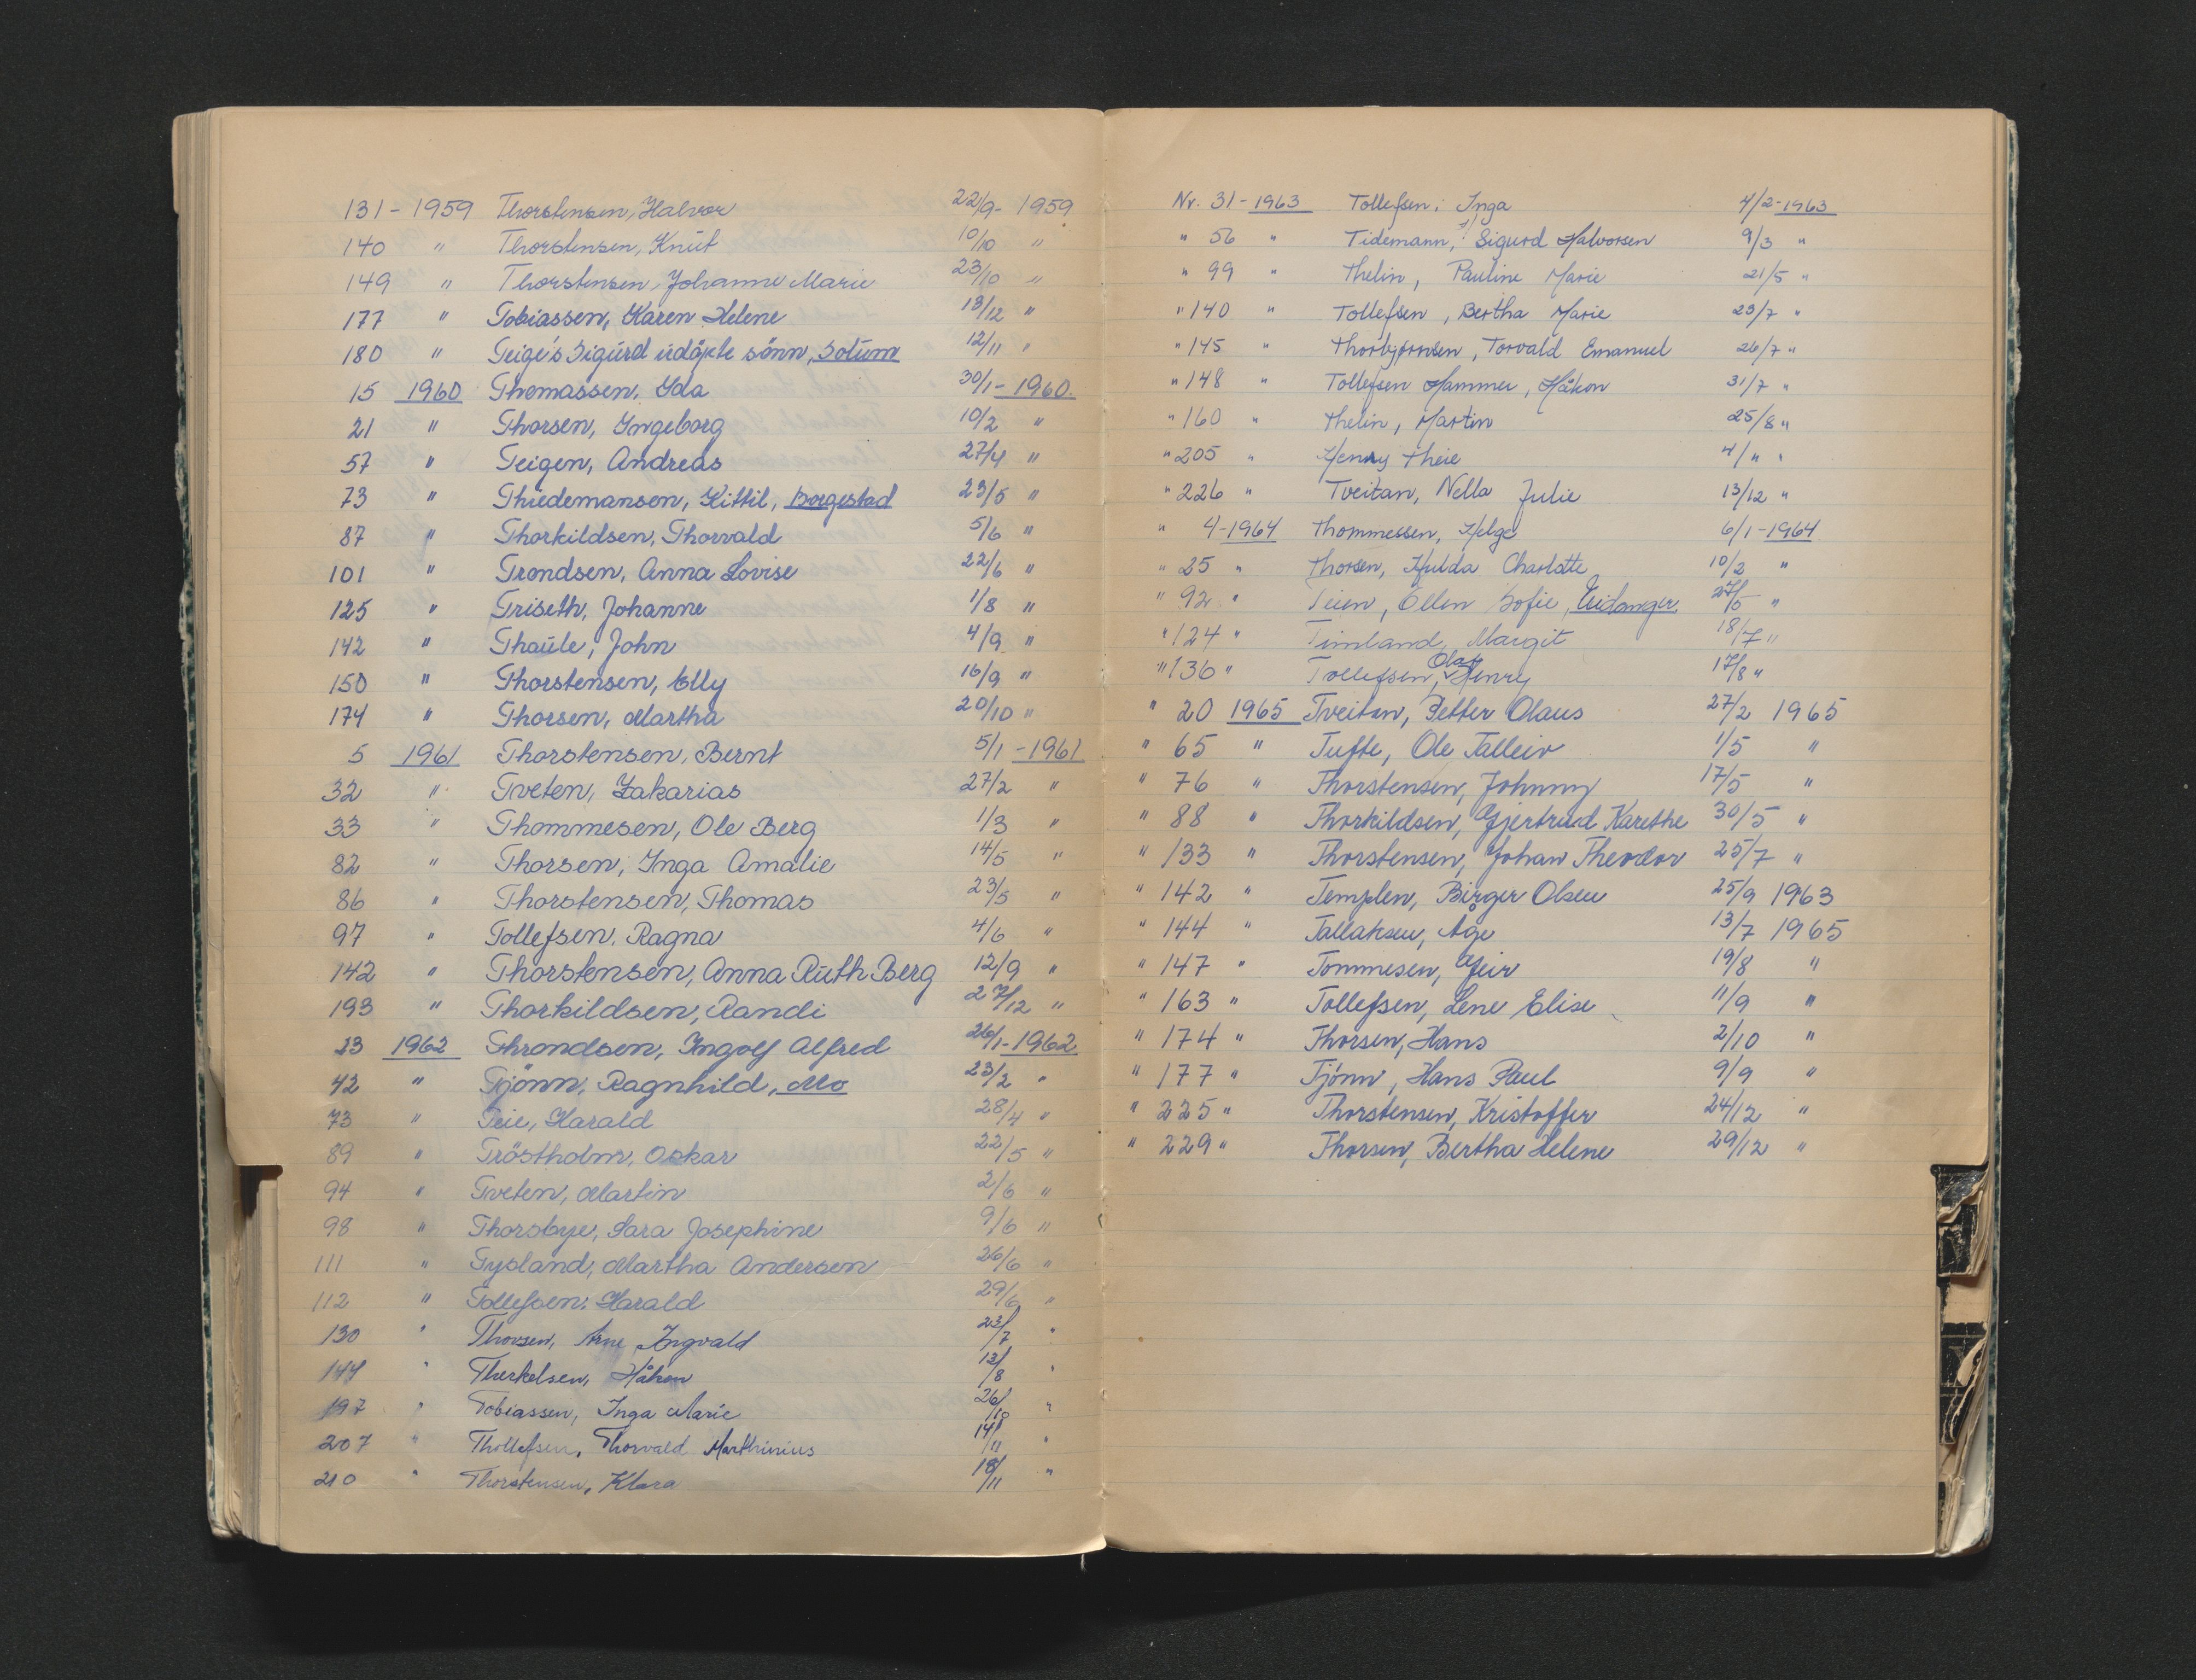 131 - 1959 Thorstensen, Halvor 22/9 - 1959
140 " Thorstensen, Knut 10/10 "
149 " Thorstensen, Johanne Marie 23/10 "
177 " Tobiassen, Karen Helene 13/12 "
180 " Teige's Sigurd udøpte sønn, Solum 12/11 "
15 1960 Thomassen, Ida 30/1 - 1960
21 " Thorsen, Ingeborg 10/2 "
57 " Teigen, Andreas 27/4 "
73 " Thiedemansen, Kittil, Borgestad 23/5 "
87 " Thorkildsen, Thorvald 5/6 "
101 " Trondsen, Anna Lovise 22/6 "
125 " Triseth, Johanne 1/8 "
142 " Thaule, John 4/9 "
150 " Thorstensen, Elly 16/9 "
174 " Thorsen, Martha 20/10 "
5 1961 Thorstensen, Bernt 5/1 - 1961
32 " Tveten, Zakarias 27/2 "
33 " Thommesen, Ole Berg 1/3 "
82 " Thorsen, Inga Amalie 14/5 "
86 " Thorstensen, Thomas 23/5 "
97 " Tollefsen, Ragna 4/6 "
142 " Thorstensen, Anna Ruth Berg 12/9 "
193 " Thorkildsen, Randi 27/12 "
23 1962 Throndsen, Ingolf Alfred 26/1 - 1962
42 " Tjønn, Ragnhild, Mo 23/2 "
73 " Teie, Harald 28/4 "
89 " Tröstholm, Oskar 22/5 "
94 " Tveten, Martin 2/6 "
98 " Thorsbye, Sara Josephine 9/6 "
111 " Tysland, Martha Andersen 26/6 "
112 " Tollefsen, Harald 29/6 "
130 " Thorsen, Arne Ingvald 23/7 "
144 " Therkelsen, Håkon 12/8 "
197 " Tobiassen, Inga Marie 26/10 "
207 " Thollefsen, Thorvald Marthinius 14/11 "
210 " Thorstensen, Klara 18/11 "
Nr. 31 - 1963 Tollefsen, Inga 4/2 - 1963
" 56 " Tidemann, Sigurd Halvorsen 9/3 "
" 99 " Thelin, Pauline Marie 21/5 "
" 140 " Tollefsen, Bertha Marie 23/7 "
" 145 " Thorbjørnsen, Torvald Emanuel 26/7 "
" 148 " Tollefsen Hammer, Håkon 31/7 "
" 160 " Thelin, Martin 25/8 "
" 205 " Henry Theie 4/" "
" 226 " Tveitan, Nella Julie 13/12 "
" 4 - 1964 Thommessen, Helge 6/1 - 1964
" 25 " Thorsen, Hulda Charlotte 10/2 "
" 92 " Teien, Ellen Sofie, Eidanger 27/5 "
" 124 " Timland, Margit 18/7 "
" 136 " Tollefsen, Olaf Henry 17/8 "
" 20 1965 Tveitan, Petter Olaus 27/2 1965
" 65 " Tufte, Ole Talleiv 1/5 "
" 76 " Thorstensen, Johnny 17/5 "
" 88 " Thorkildsen, Gjertrud Karethe 30/5 "
" 133 " Thorstensen, Johan Theodor 25/7 "
" 142 " Templen, Birger Olsen 25/9 1963
" 144 " Tallaksen, Åge 13/7 1965
" 147 " Tommesen, Geir 19/8 "
" 163 " Tollefsen, Lene Elise 11/9 "
" 174 " Thorsen, Hans 2/10 "
" 177 " Tjönn, Hans Paul 9/9 "
" 225 " Thorstensen, Kristoffer 24/12 "
" 229 " Thorsen, Bertha Helene 29/12 "